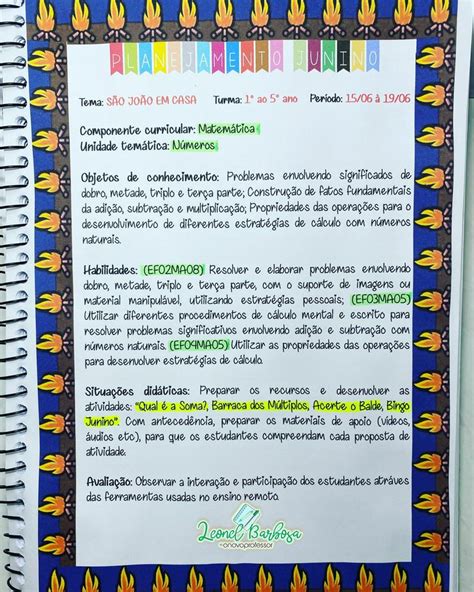 PLANEJAMENTO JUNINO
Tema: SÃO JOÃO EM CASA Turma: 1° ao 5° ano Período: 15/06 à 19/06
Componente curricular: Matemática
Unidade temática: Números
Objetos de conhecimento: Problemas envolvendo significados de
dobro, metade, triplo e terça parte; Construção de fatos fundamentais
da adição, subtração e multiplicação; Propriedades das operações para o
desenvolvimento de diferentes estratégias de cálculo com números
naturais.
Habilidades: (EF02MA08) Resolver e elaborar problemas envolvendo
dobro, metade, triplo e terça parte, com o suporte de imagens ou
material manipulável, utilizando estratégias pessoais; (EF03MA05)
Utilizar diferentes procedimentos de cálculo mental e escrito para
resolver problemas significativos envolvendo adição e subtração com
números naturais. (EF04MA05) Utilizar as propriedades das operações
para desenvolver estratégias de cálculo.
Situações didáticas: Preparar os recursos e desenvolver as
atividades: "Qual é a Soma?, Barraca dos Múltiplos, Acerte o Balde, Bingo
Junino". Com antecedência, preparar os materiais de apoio (vídeos,
áudios etc), para que os estudantes compreendam cada proposta de
atividade.
Avaliação: Observar a interação e participação dos estudantes atráves
das ferramentas usadas no ensino remoto.
Leonel Barbosa
onovoprofessor